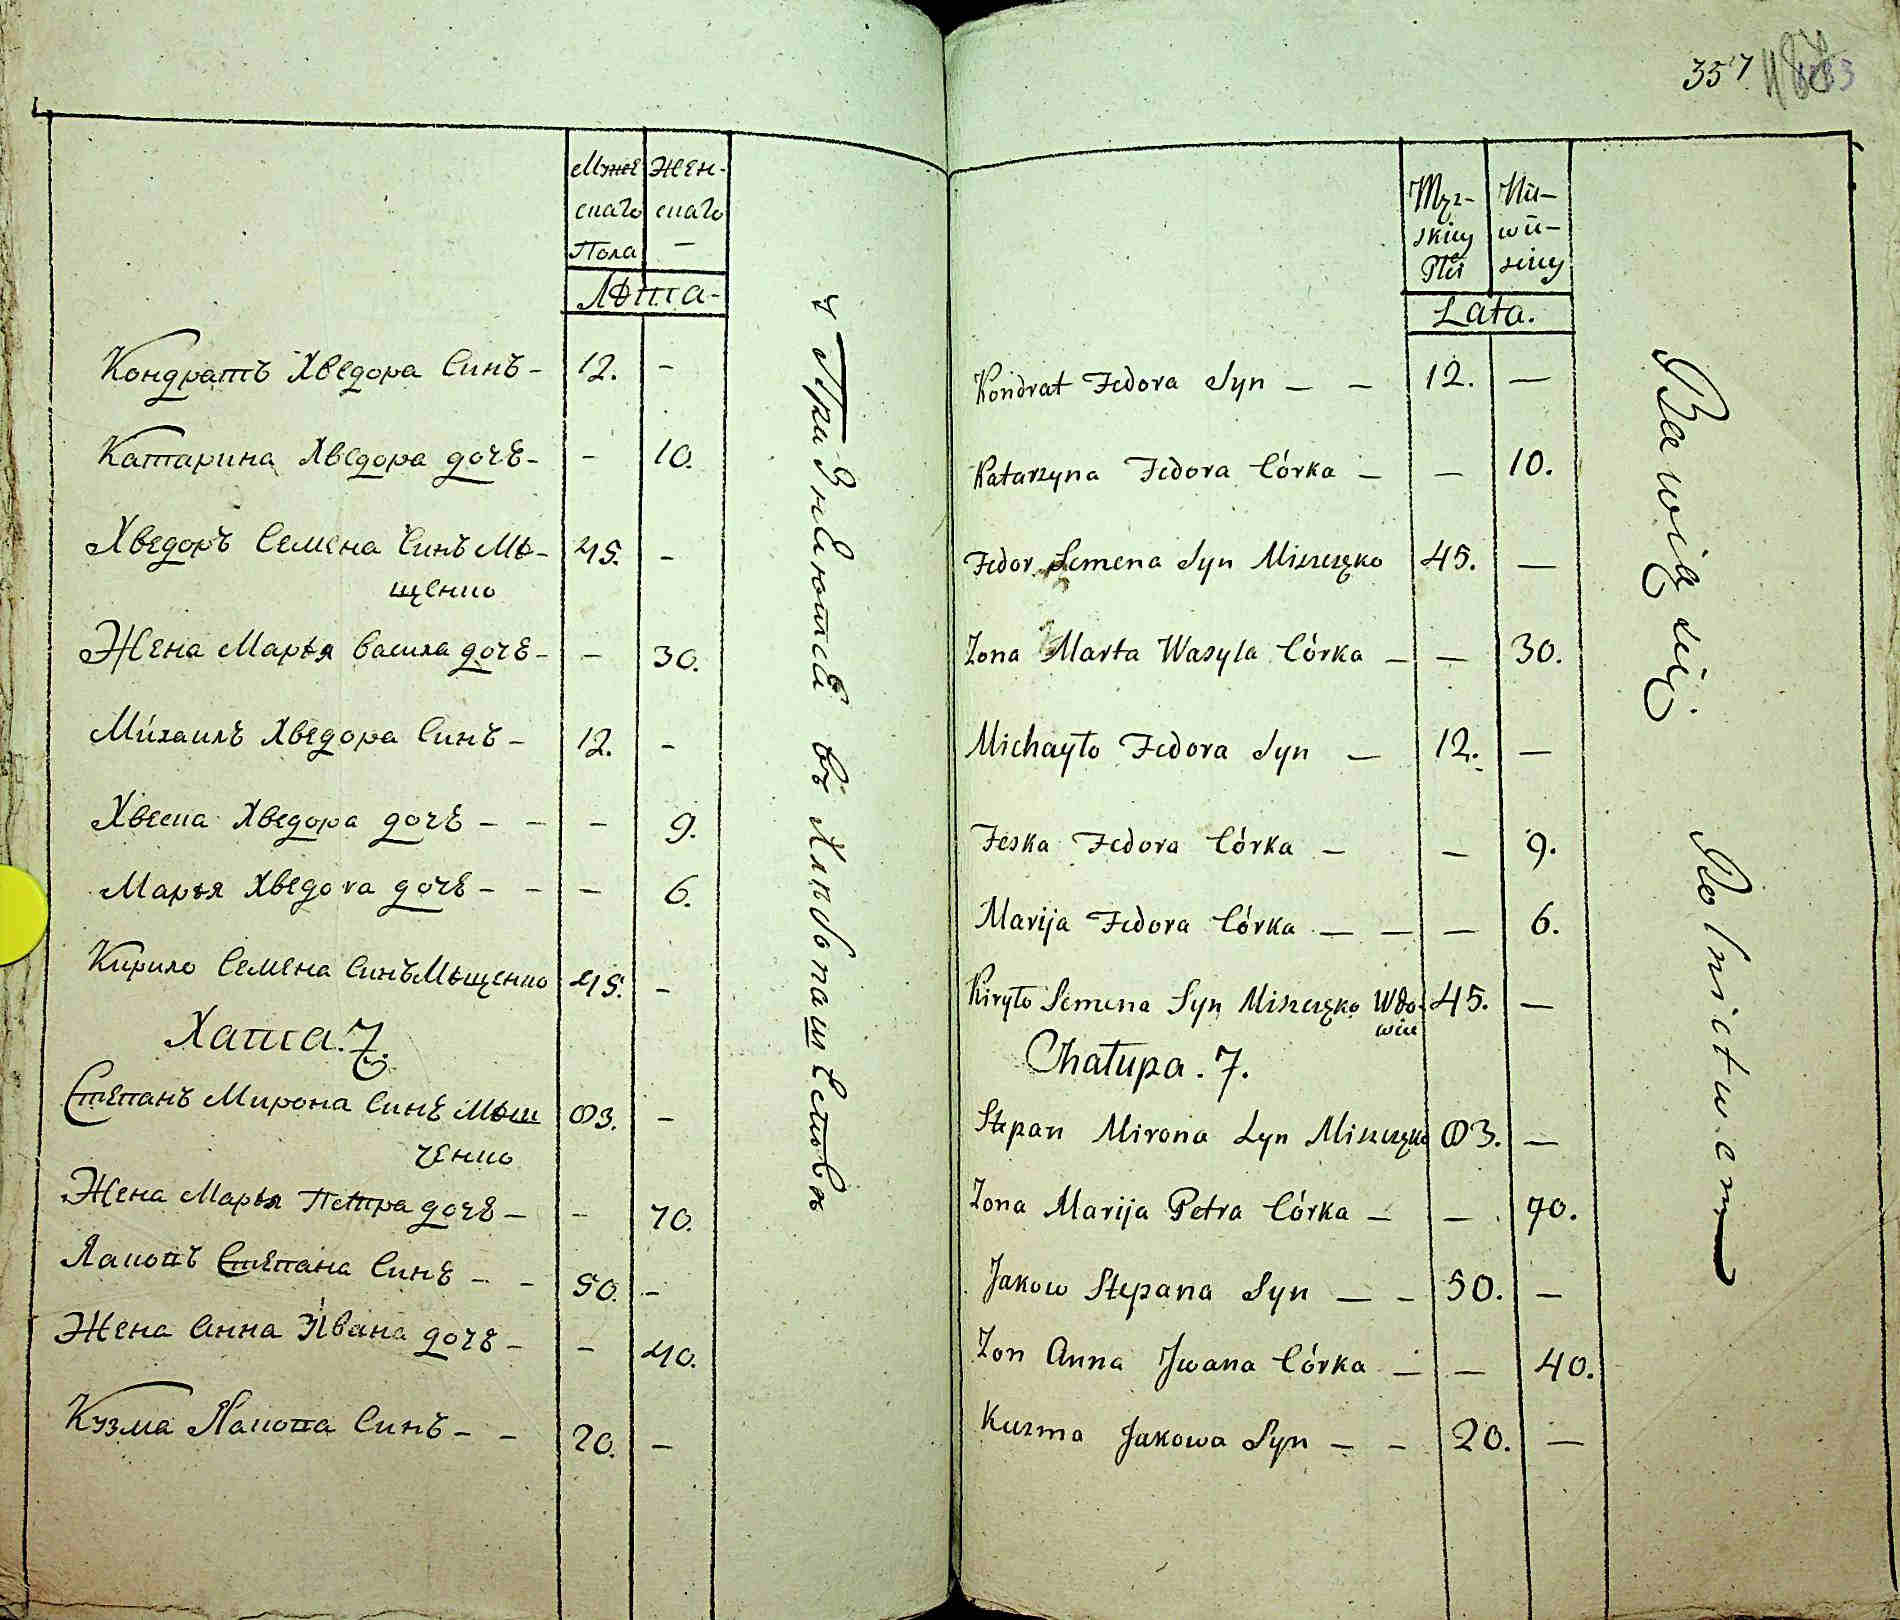 Муже Жен-
скаго скаго
Пола —
Лѣта-
Кондратъ Хведора Синъ - 12. -
Катарина Хведора дочь - - 10.
Хведоръ Семена Синъ Мѣ- 45. -
щенко
Жена Марья Васила дочь - - 30.
Михаилъ Хведора Синъ - 12. -
Хвеска Хведора дочь - - - 9.
Марья Хведоrа дочь - - - 6.
Кирило Семена Синъ Мѣщенко 45. -
Хата. 7.
Степанъ Мирона Синъ Мѣш 83. -
ченко
Жена Марья Петра дочь - - 70.
Якопъ Степана Синъ - - 50. -
Жена Анна Ивана дочь - - 40.
Кузма Якопа Синъ - - 20. -
въ Хлѣбопашествѣ
357
Męz- Nie-
skiey wie-
Płci sciey
Lata.
Kondrat Fedora Syn — — 12. —
Katarzyna Fedora Córka — — 10.
Fedor Semena Syn Miszczęko 45. —
Zona Marta Wasyla Córka — — 30.
Michayło Fedora Syn — 12. —
Feska Fedora Córka — — 9.
Marija Fedora Córka — — — 6.
Kiryło Semena Syn Miszczęko Wdo- 45. —
wiec
Chałupa. 7.
Stepan Mirona Syn Miszczęko 83. —
Zona Marija Petra Córka — — 70.
Jakow Stepana Syn — - 50. —
Zon Anna Jwana Córka — — 40.
Kuzma Jakowa Syn — - 20. —
Bawią się Rolnictwem